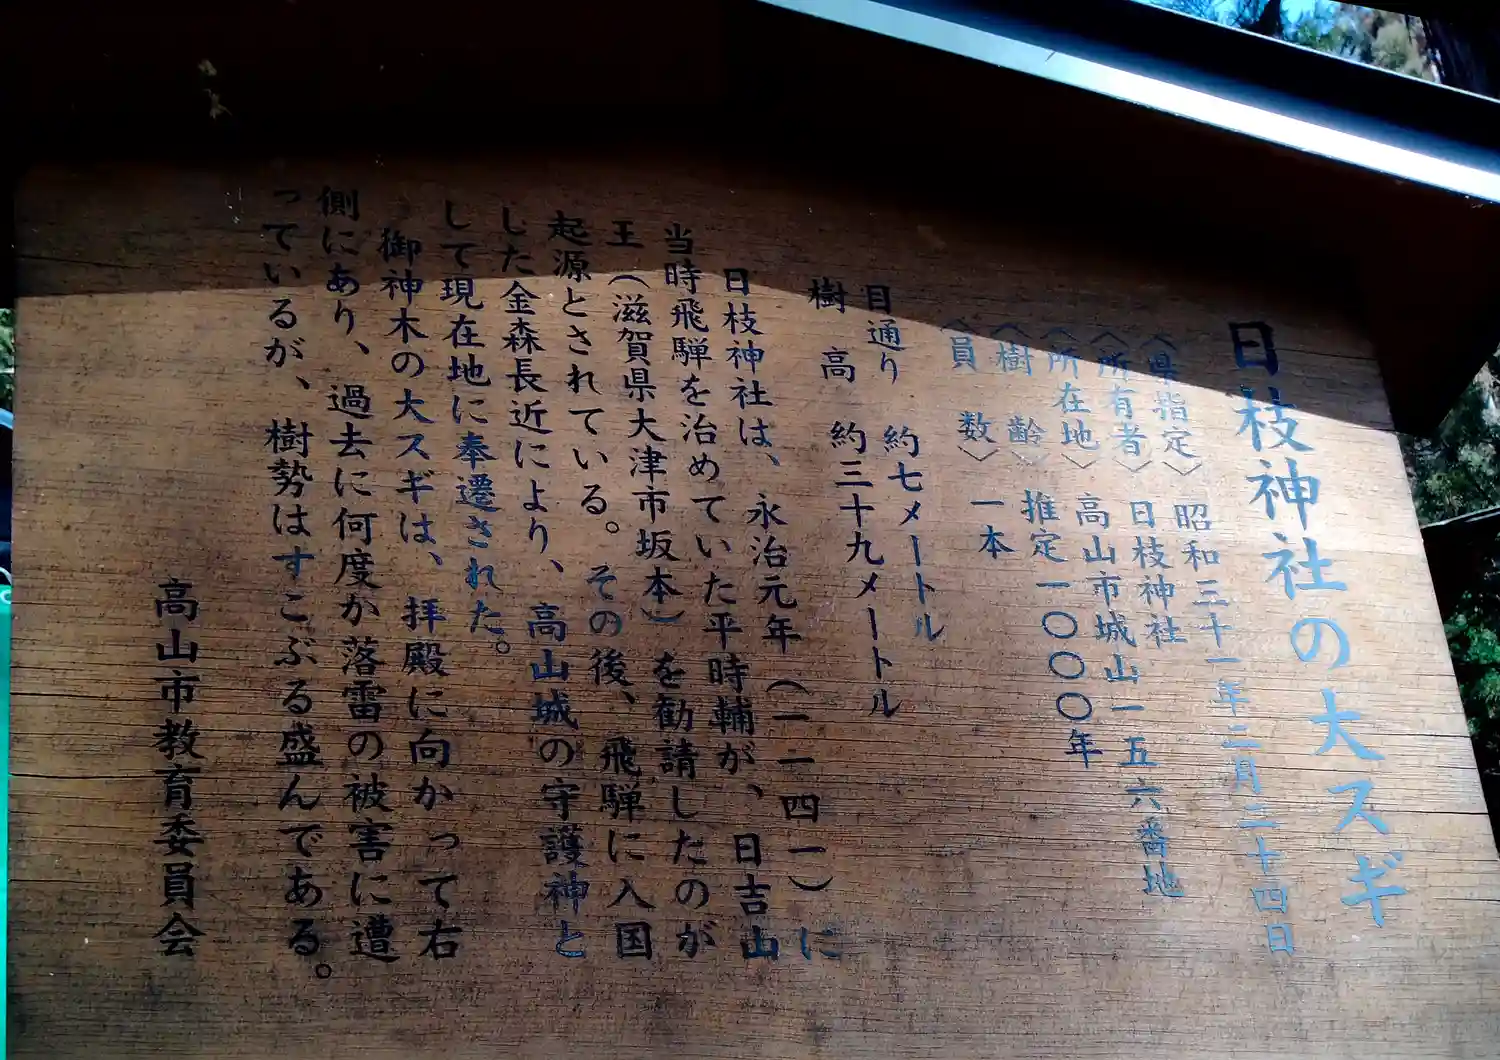 日枝神社の大スギ
〈県指定〉 昭和三十一年二月二十四日
〈所有者〉 日枝神社
〈所在地〉 高山市城山一五六番地
〈樹　齢〉 推定一〇〇〇年
〈員　数〉 一本
目通り　約七メートル
樹　高　約三十九メートル
日枝神社は、永治元年（一一四一）に
当時飛騨を治めていた平時輔が、日吉山
王（滋賀県大津市坂本）を勧請したのが
起源とされている。その後、飛騨に入国
した金森長近により、高山城の守護神と
して現在地に奉遷された。
御神木の大スギは、拝殿に向かって右
側にあり、過去に何度か落雷の被害に遭
っているが、樹勢はすこぶる盛んである。
高山市教育委員会